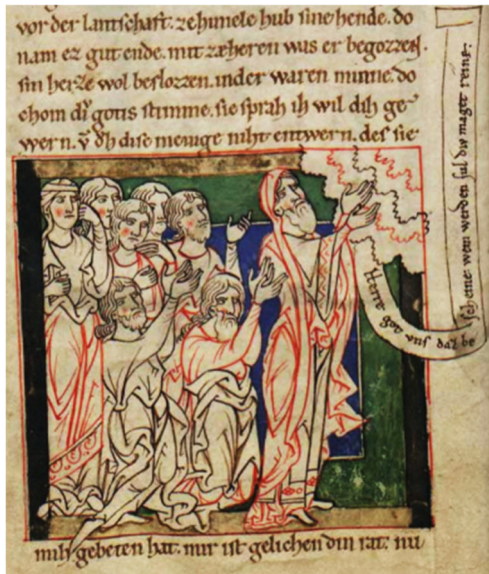 vor der lantschaft. ze himele hub sine hende. do
nam ez gut ende. mit zæheren was er begozzen.
sin herze wol beslozzen. inder waren minne. do
chom di gotis stimme. sie sprah ih wil dih ge-
wern. v̄ dise menige niht entwern. des sie
Herre got vns daz be
scheine: wem werden sul div maget reine:
mih gebeten hat. mir ist gelichen din rat. nu